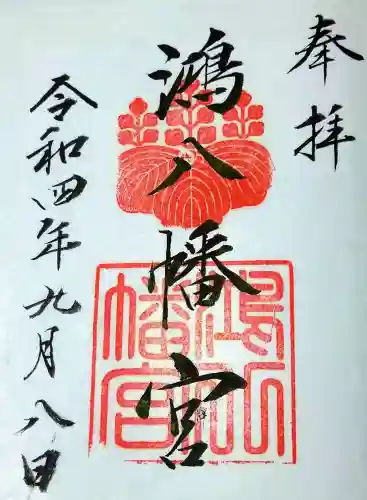 奉拝
鴻八幡宮
令和四年九月八日
鴻八
幡宮